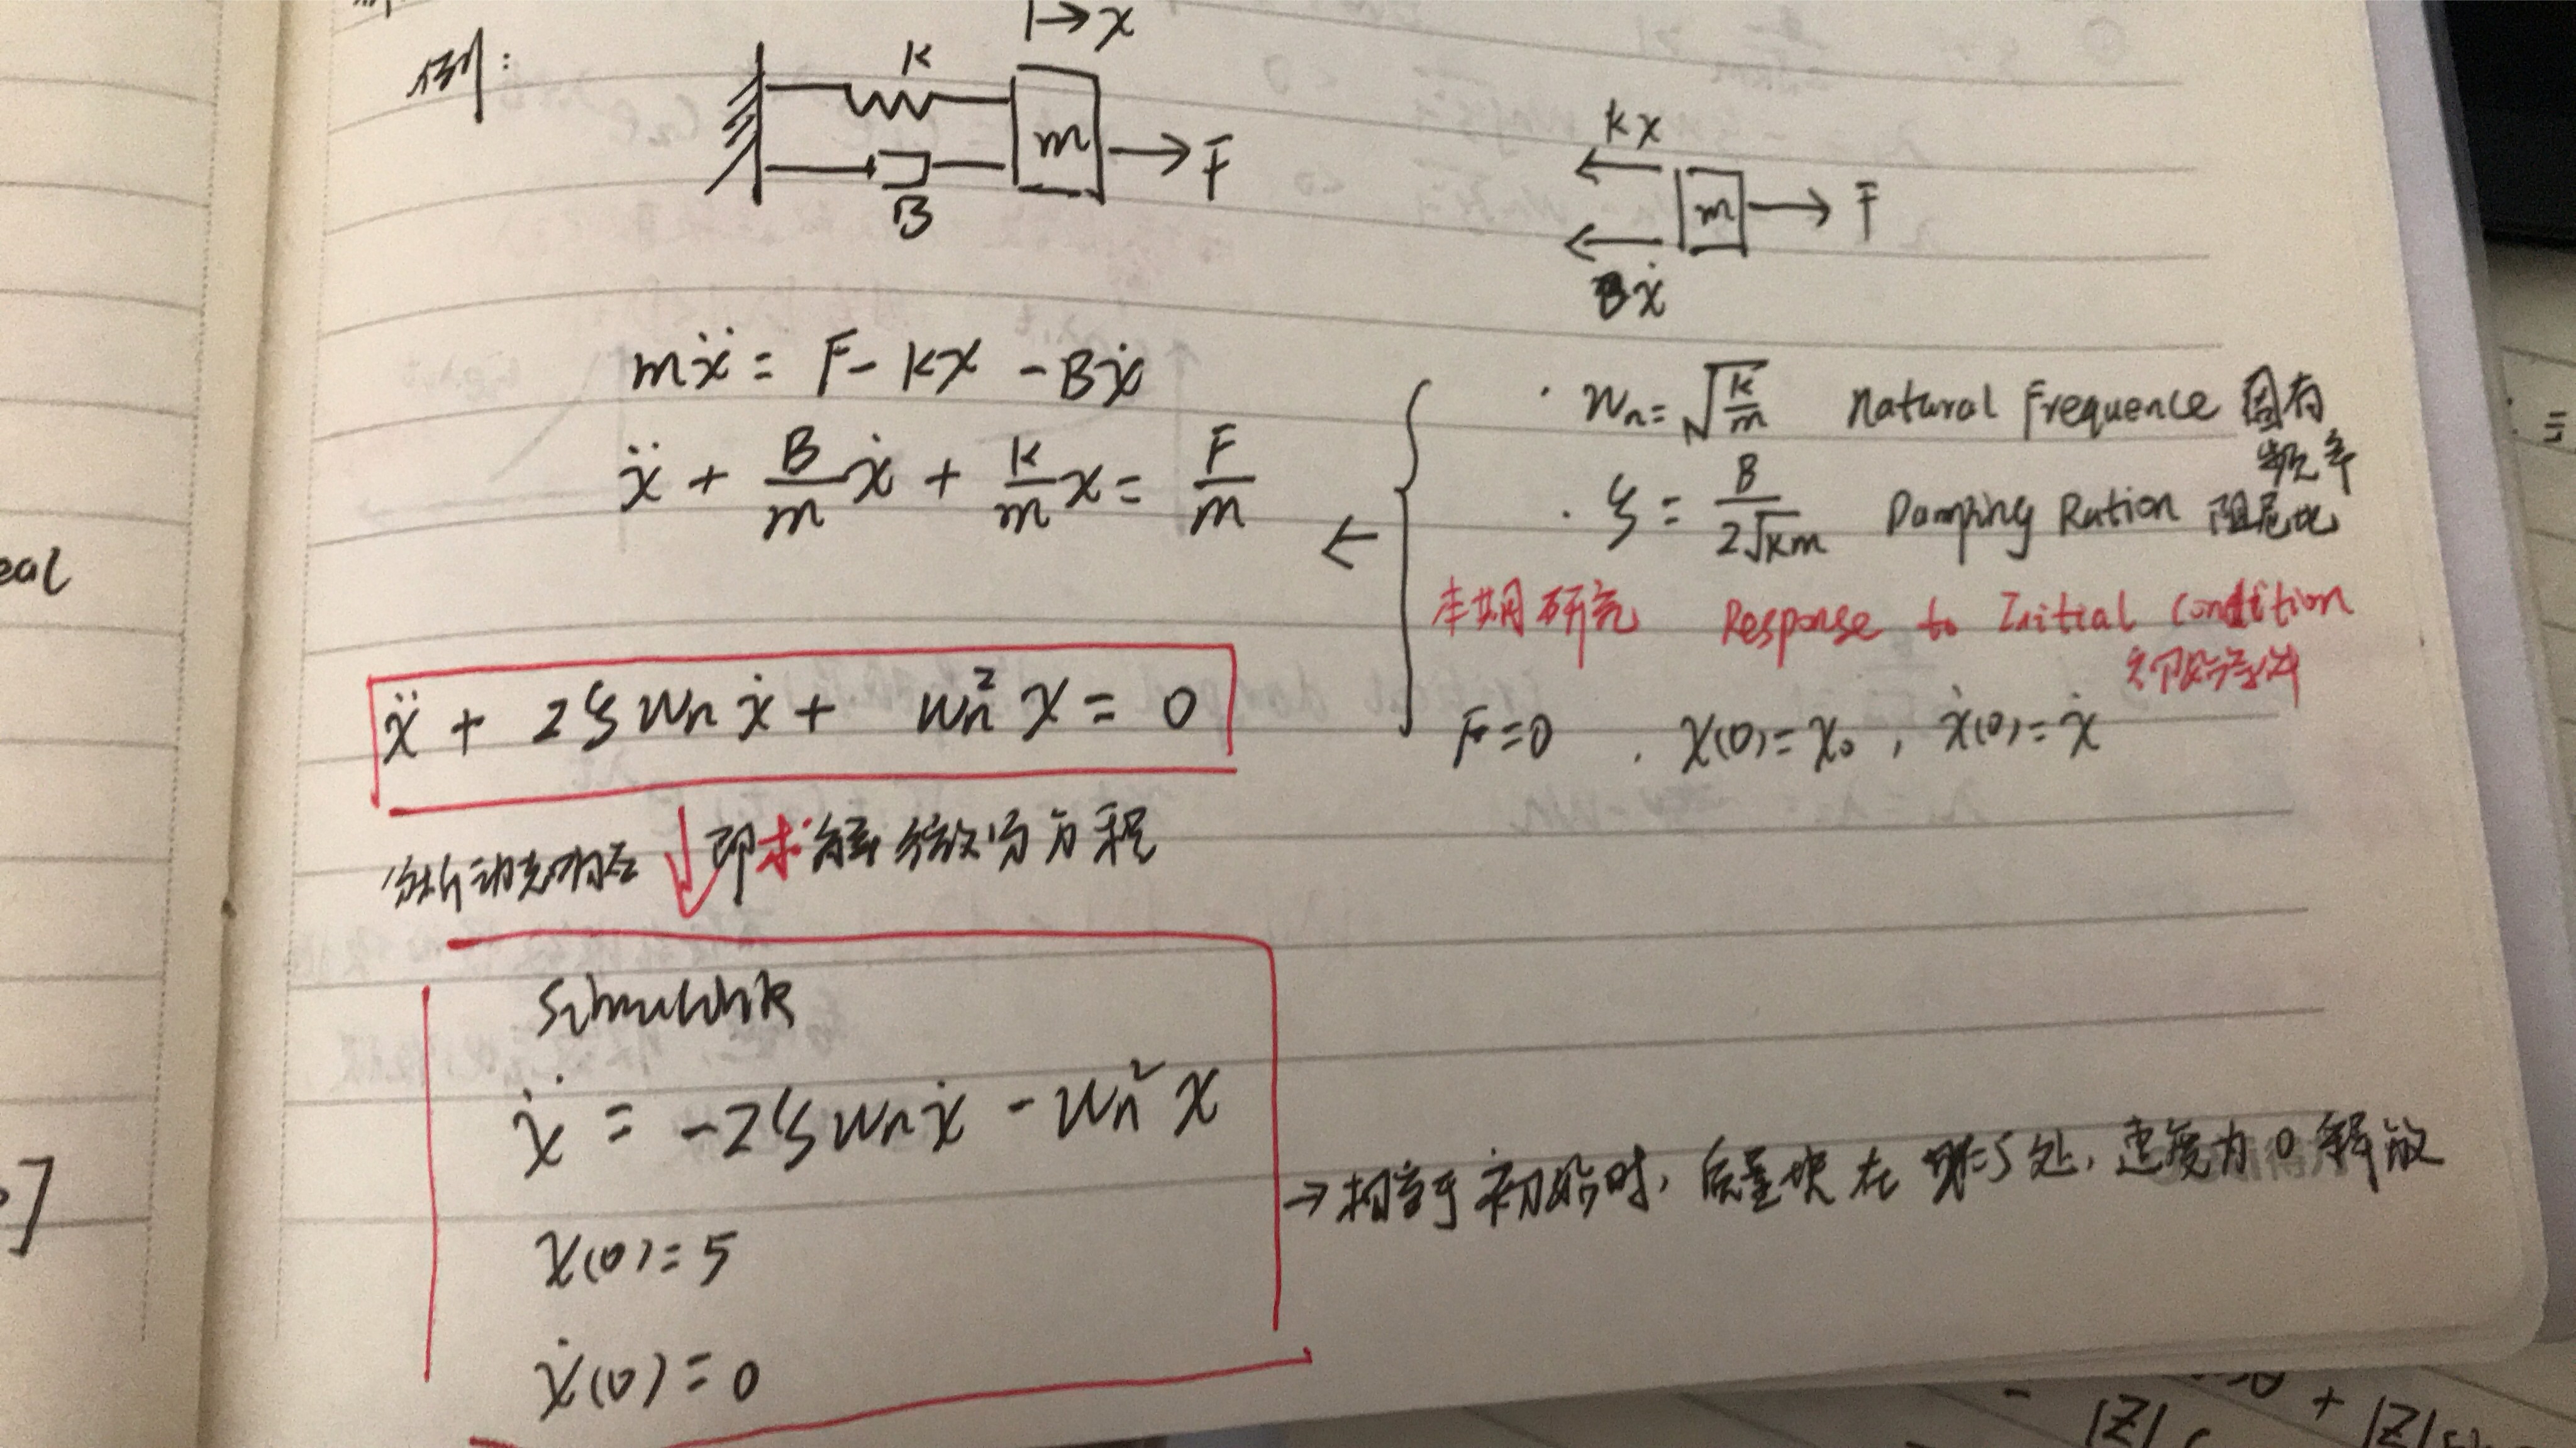 例:
|→x
K
m
→F
B
Kx
m → F
Bẋ
mẍ = F - Kx - Bẋ
ẍ + B/m ẋ + K/m x = F/m
· Wn = √(K/m) Natural Frequence 固有频率
· ζ = B/(2√(Km)) Damping Ration 阻尼比
←
本期研究 Response to Initial Condition
对初始条件
F=0 . x(0)=x₀, ẋ(0)=ẋ
ẍ + 2ζWnẋ + Wn²x = 0
分析动态响应 即求解微分方程
Simulink
ẍ = -2ζWnẋ - Wn²x
x(0)=5
ẋ(0)=0
→相当于初始时, 质量块在x=5处, 速度为0释放
eal
]
|Z|
+
|Z|